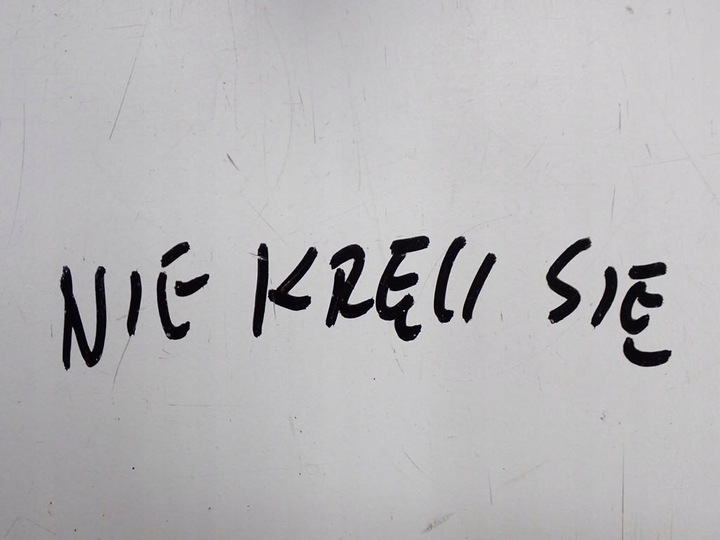 NIE KRĘCI SIĘ